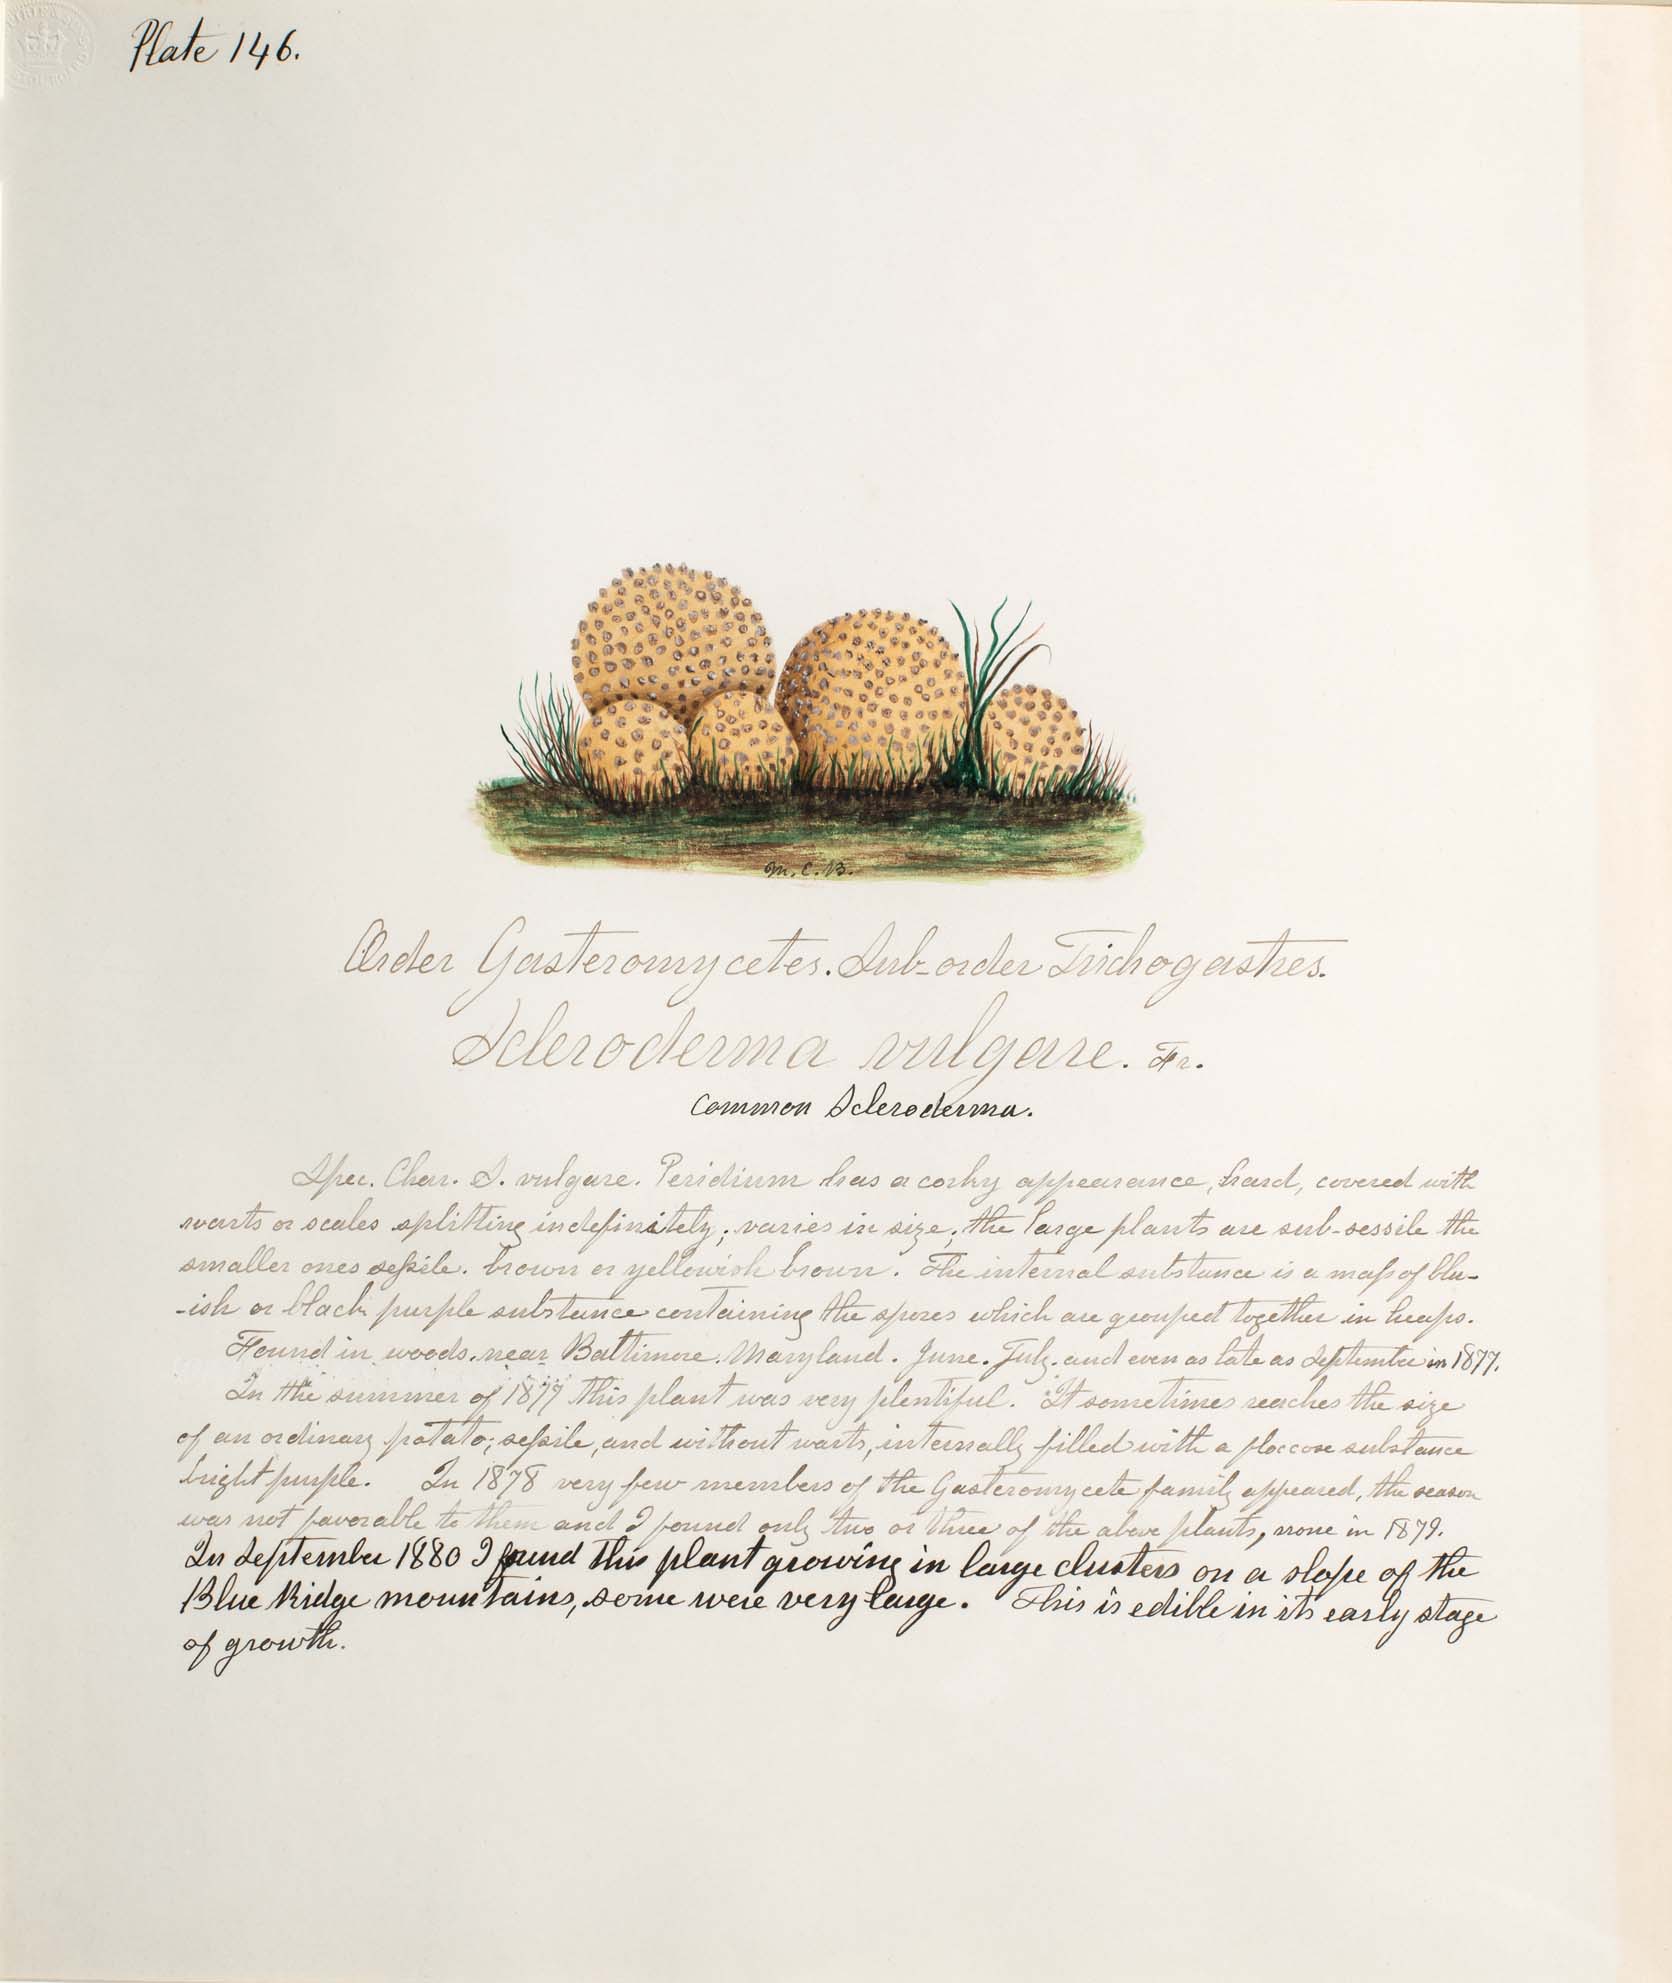 Plate 146.
M. C. B.
Order Gasteromycetes. Sub-order Trichogastres.
Scleroderma vulgare. Fr.
Common Scleroderma.
Spec. Char. S. vulgare. Peridium has a corky appearance, hard, covered with
warts or scales splitting indefinitely; varies in size; the large plants are sub-sessile the
smaller ones sessile. brown or yellowish brown. The internal substance is a mass of blu-
-ish or black purple substance containing the spores which are grouped together in heaps.
Found in woods. near Baltimore. Maryland. June. July. and even as late as September in 1877.
In the summer of 1877 this plant was very plentiful. It sometimes reaches the size
of an ordinary potato; sessile, and without warts, internally filled with a floccose substance
bright purple. In 1878 very few members of the Gasteromycete family appeared, the season
was not favorable to them and I found only two or three of the above plants, none in 1879.
In September 1880 I found this plant growing in large clusters on a slope of the
Blue Ridge mountains, some were very large. This is edible in its early stage
of growth.